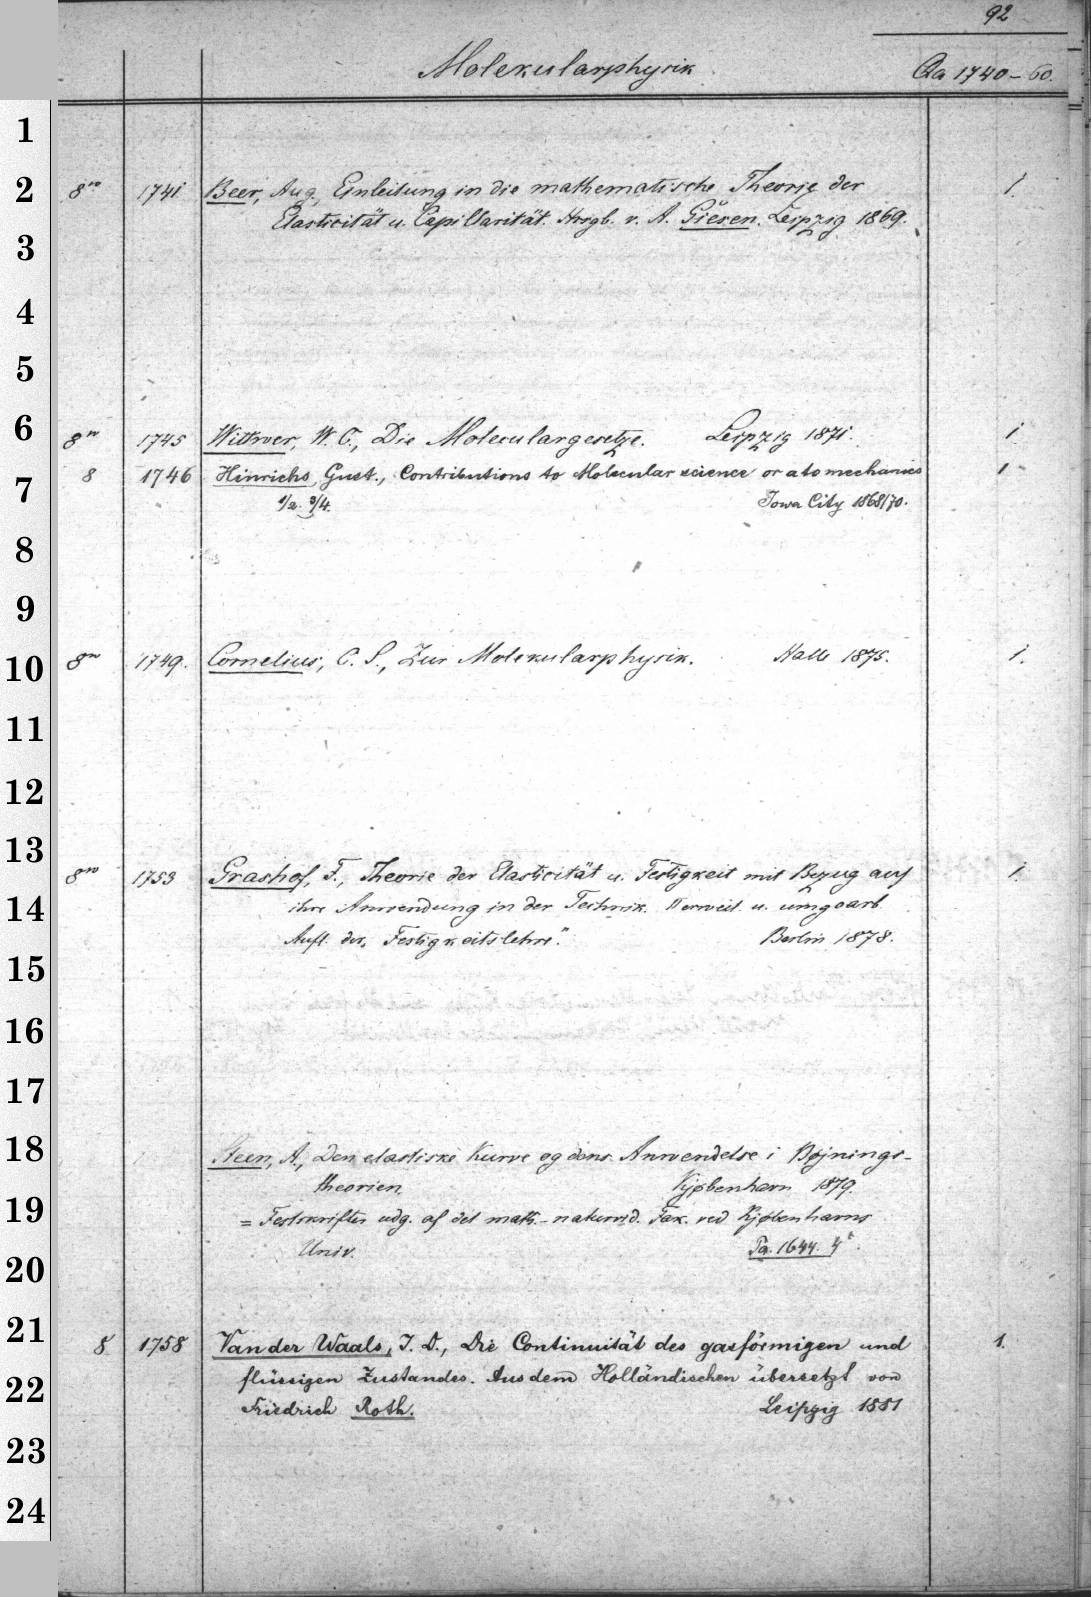 92
Molekularphysik
Qa 1740-60.
1
2 8vo 1741 Beer, Aug., Einleitung in die mathematische Theorie der 1.
Elasticität u. Capillarität. Hrsgb. v. A. Giesen. Leipzig 1869.
3
4
5
6 8vo 1745 Wittwer, W. C., Die Moleculargesetze. Leipzig 1871. 1
7 8 1746 Hinrichs, Gust., Contributions to Molecular science or atomechanics 1
1/2. 3/4. Iowa City 1868/70.
8
9
10 8vo 1749. Cornelius, C. S., Zur Molekularphysik. Halle 1875. 1.
11
12
13 8vo 1753 Grashof, F., Theorie der Elasticität u. Festigkeit mit Bezug auf 1.
14 ihre Anwendung in der Technik. II erweit. u. umgearb.
Aufl. der „Festigkeitslehre." Berlin 1878.
15
16
17
18 Steen, A., Den elastiske Kurve og dens Anvendelse i Bøjnings-
theorien. Kjøbenhavn 1879.
19 = Festskrifter udg. af det math.-naturvid. Fak. ved Kjøbenhavns
Univ. Pa. 1644. 4°.
20
21 8 1758 Van der Waals, J. D., Die Continuität des gasförmigen und 1.
22 flüssigen Zustandes. Aus dem Holländischen übersetzt von
Friedrich Roth. Leipzig 1881
23
24